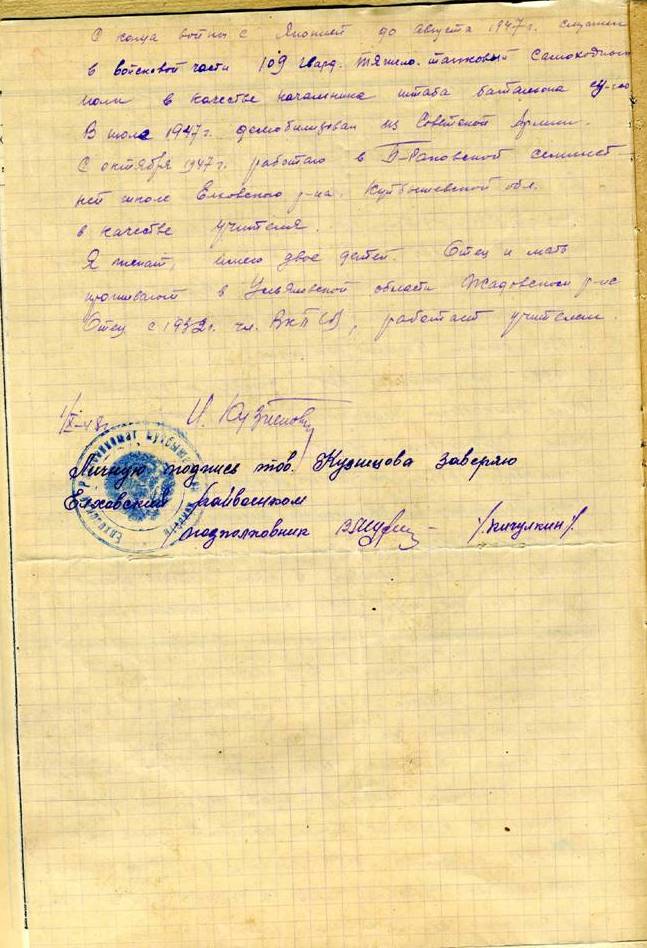 С конца войны с Японией до августа 1947 г. служил
в войсковой части 109 гвард. тяжело. танковый самоходного
полк в качестве начальника штаба батальона су-100
В июле 1947 г. демобилизован из Советской Армии.
С октября 1947 г. работаю в семилет-
ней школе Елховского р-на. Куйбышевской обл.
в качестве учителя.
Я женат, имею двое детей. Отец и мать
проживают в Ульяновской области Жадовском р-не
Отец с 1932 г. чл. ВКП(б), работает учителем.
И. Кузнецов
Личную подпись тов. Кузнецова заверяю
Елховский Райвоенком
подполковник /Пичулкин/.